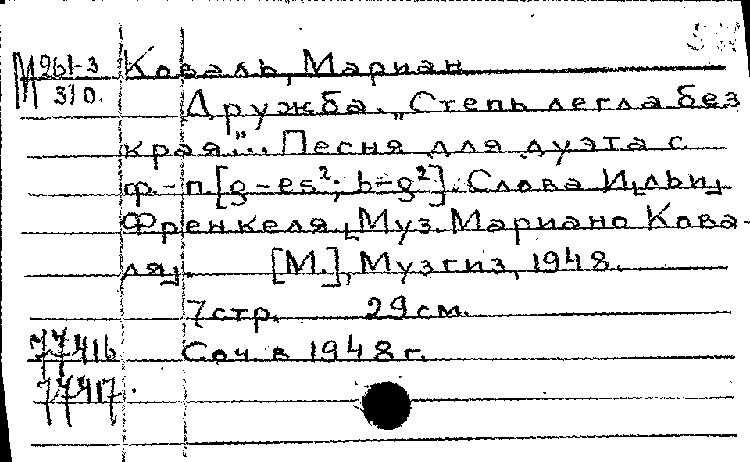 М 261-3 Коваль, Мариан
310. Дружба. „Степь легла без
края“... Песня для дуэта с
ф.-п. [g-es²; b-g²]. Слова И[льи]
Френкеля, Муз. Мариана Кова-
ля]. [М.], Музгиз, 1948.
7 стр. 29 см.
77416 Соч. в 1948 г.
77417.